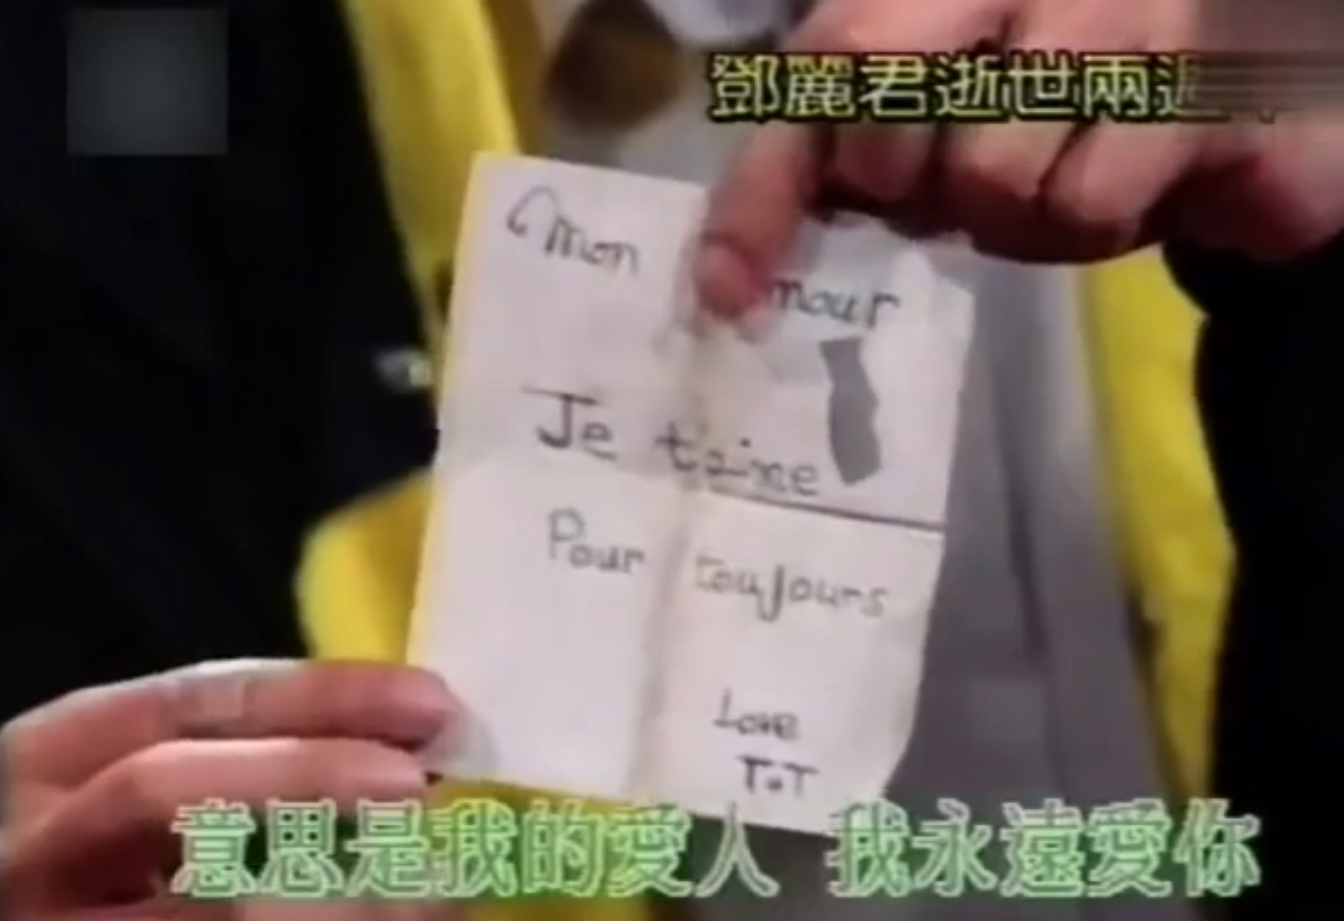 鄧麗君逝世兩週
Mon mour
Je t'aime
Pour toujours
Love
ToT
意思是我的愛人 我永遠愛你